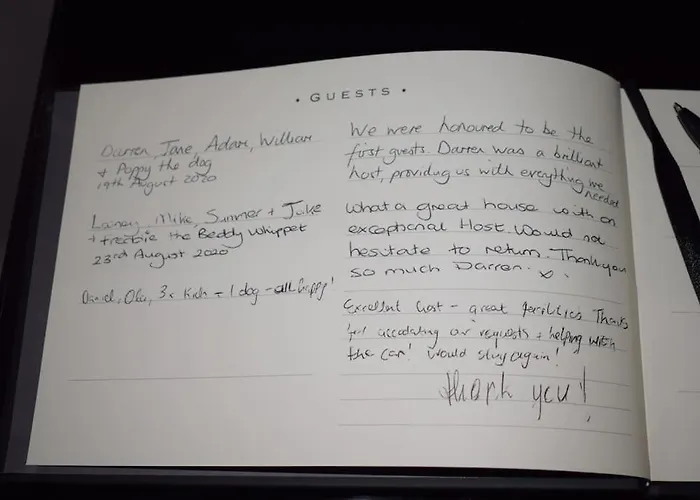 • GUESTS •
Darren, Jane, Adam, William
+ Poppy the dog
19th August 2020
We were honoured to be the
first guests. Darren was a brilliant
host, providing us with everything we
needed
Lainey, Mike, Summer + Jake
+ freebie the Beddy Whippet
23rd August 2020
What a great house with an
exceptional Host. Would not
hesitate to return. Thank you
so much Darren. x.
Daniel, 3x Kids + 1 dog - all happy!
Excellent host - great facilities Thanks
for our requests + helping with
the car! Would stay again!
thank you!